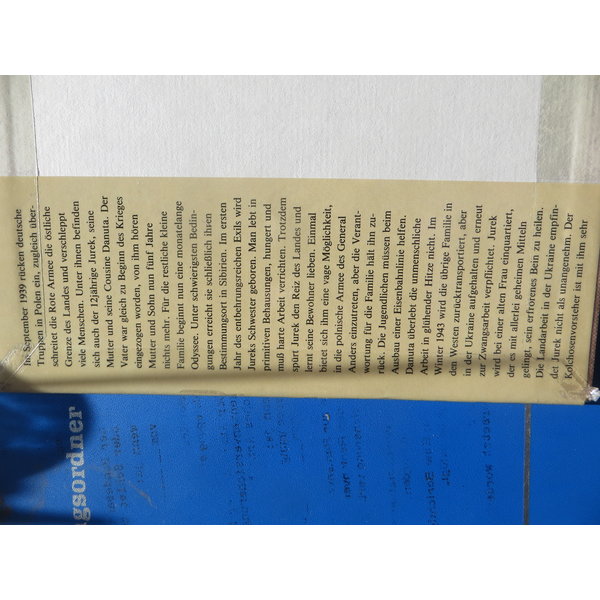 Im September 1939 rücken deutsche
Truppen in Polen ein, zugleich über-
schreitet die Rote Armee die östliche
Grenze des Landes und verschleppt
viele Menschen. Unter ihnen befinden
sich auch der 12jährige Jurek, seine
Mutter und seine Cousine Danuta. Der
Vater war gleich zu Beginn des Krieges
eingezogen worden, von ihm hören
Mutter und Sohn nun fünf Jahre
nichts mehr. Für die restliche kleine
Familie beginnt nun eine monatelange
Odyssee. Unter schwierigsten Bedin-
gungen erreicht sie schließlich ihren
Bestimmungsort in Sibirien. Im ersten
Jahr des entbehrungsreichen Exils wird
Jureks Schwester geboren. Man lebt in
primitiven Behausungen, hungert und
muß harte Arbeit verrichten. Trotzdem
spürt Jurek den Reiz des Landes und
lernt seine Bewohner lieben. Einmal
bietet sich ihm eine vage Möglichkeit,
in die polnische Armee des General
Anders einzutreten, aber die Verant-
wortung für die Familie hält ihn zu-
rück. Die Jugendlichen müssen beim
Ausbau einer Eisenbahnlinie helfen.
Danuta überlebt die unmenschliche
Arbeit in glühender Hitze nicht. Im
Winter 1943 wird die übrige Familie in
den Westen zurücktransportiert, aber
in der Ukraine aufgehalten und erneut
zur Zwangsarbeit verpflichtet. Jurek
wird bei einer alten Frau einquartiert,
der es mit allerlei geheimen Mitteln
gelingt, sein erfrorenes Bein zu heilen.
Die Landarbeit in der Ukraine empfin-
det Jurek nicht als unangenehm. Der
Kolchosenvorsteher ist mit ihm sehr
gsordner